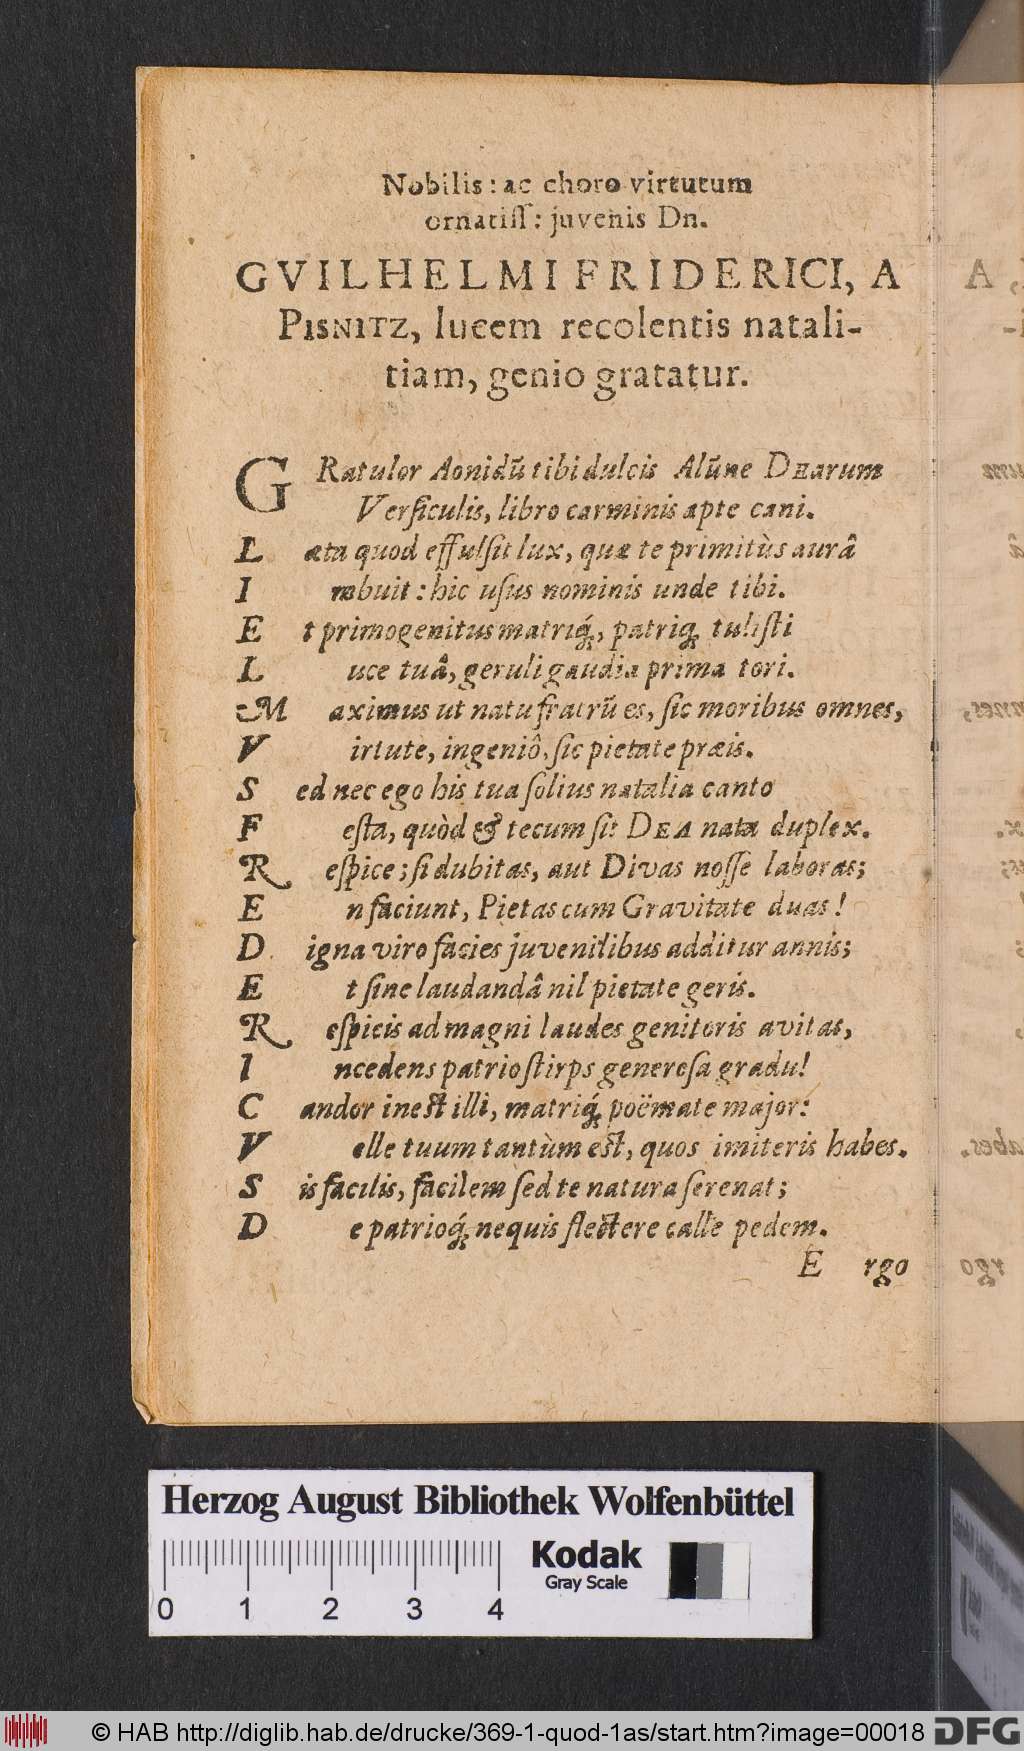 Nobilis: ac choro virtutum
ornatiſſ: juvenis Dn.
GVILHELMI FRIDERICI, A
PISNITZ, lucem recolentis natali-
tiam, genio gratatur.
GRatulor Aonidū tibi dulcis Alūne DEarum
Verſiculis, libro carminis apte cani.
L æta quod effulſit lux, quæ te primitùs aurâ
I mbuit: hic uſus nominis unde tibi.
E t primogenitus matriq́;, patriq; tuliſti
L uce tuâ, geruli gaudia prima tori.
M aximus ut natu fratrū es, ſic moribus omnes,
V irtute, ingeniô, ſic pietate præis.
S ed nec ego his tua ſolius natalia canto
F eſta, quòd & tecum ſit DEA nata duplex.
R eſpice; ſi dubitas, aut Divas noſſe laboras;
E n faciunt, Pietas cum Gravitate duas!
D igna viro facies juvenilibus additur annis;
E t ſine laudandâ nil pietate geris.
R eſpicis ad magni laudes genitoris avitas,
I ncedens patrio ſtirps generoſa gradu!
C andor ineſt illi, matriq́; poëmate major:
V elle tuum tantùm eſt, quos imiteris habes.
S is facilis, facilem ſed te natura ſerenat;
D e patrioq́; nequis flectere calle pedem.
E rgo
Herzog August Bibliothek Wolfenbüttel
Kodak
Gray Scale
0 1 2 3 4
© HAB http://diglib.hab.de/drucke/369-1-quod-1as/start.htm?image=00018 DFG